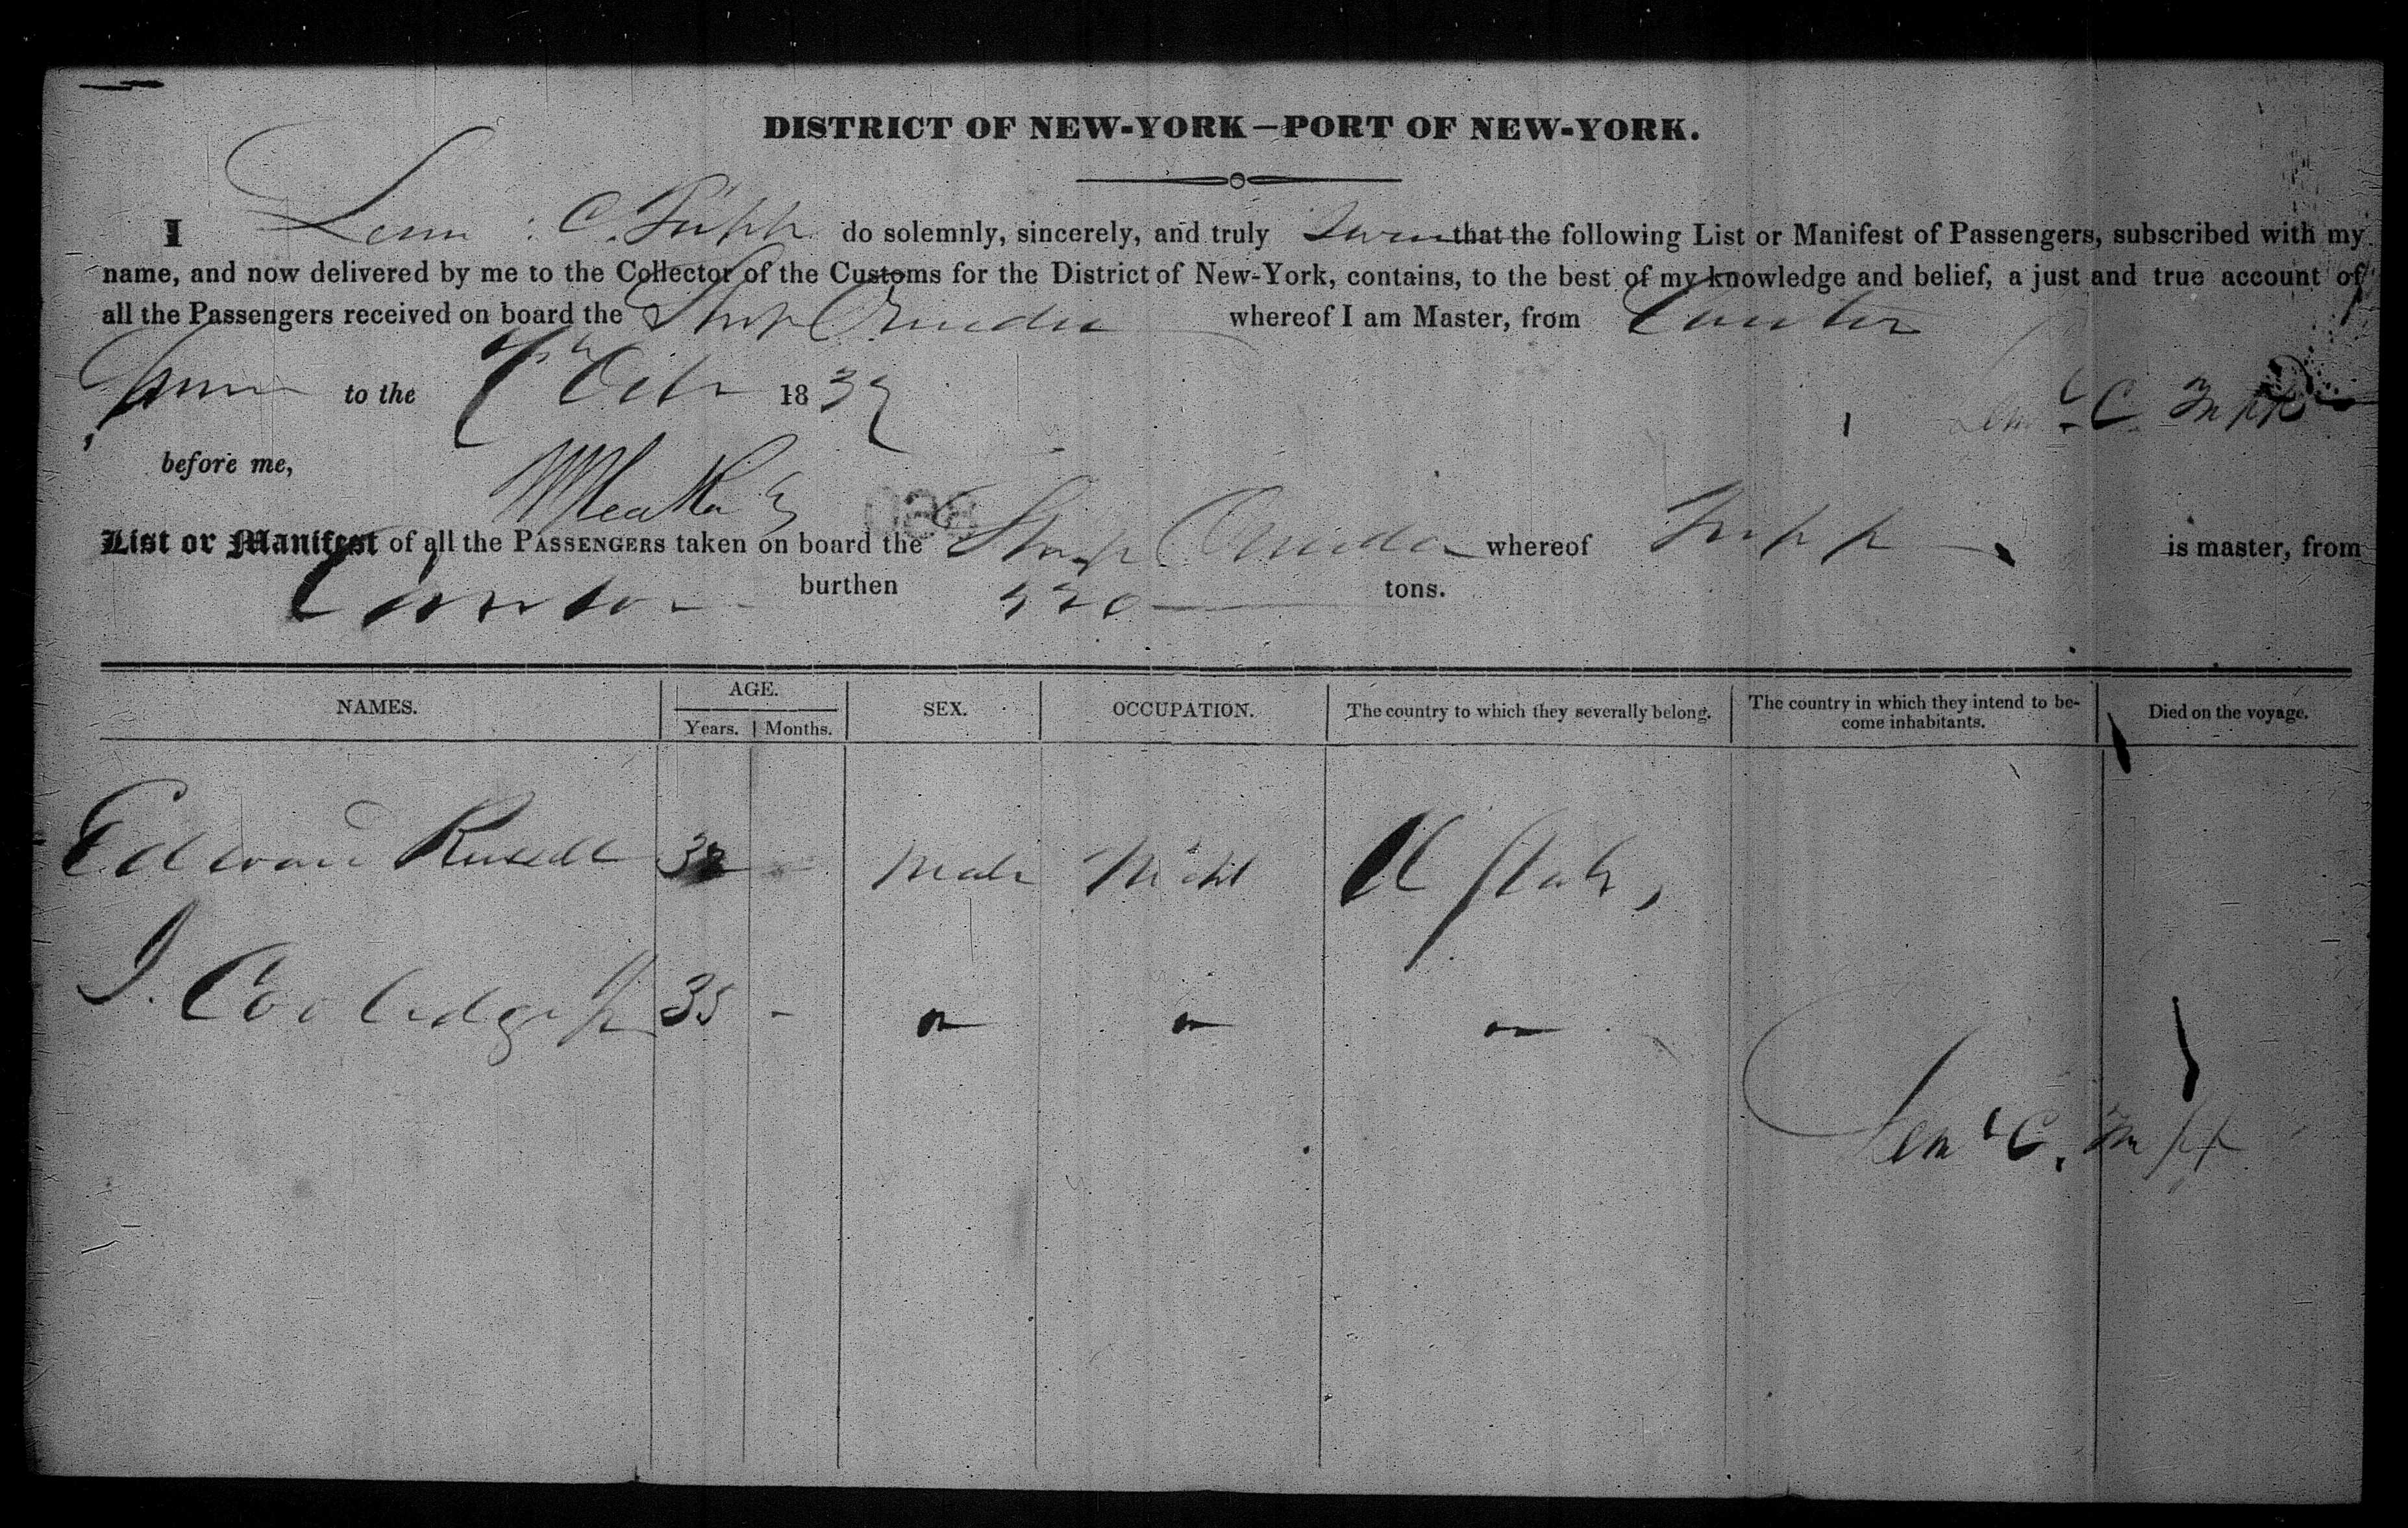 DISTRICT OF NEW-YORK—PORT OF NEW-YORK.
I Lem : C. Tripp do solemnly, sincerely, and truly Swear that the following List or Manifest of Passengers, subscribed with my
name, and now delivered by me to the Collector of the Customs for the District of New-York, contains, to the best of my knowledge and belief, a just and true account of
all the Passengers received on board the Ship Oneida whereof I am Master, from Canton
Sworn to the Octr 1839
Lem C. Tripp
before me,
List or Manifest of all the PASSENGERS taken on board the Ship Oneida whereof Tripp is master, from
Canton burthen tons.
NAMES. AGE. SEX. OCCUPATION. The country to which they severally belong. The country in which they intend to be- Died on the voyage.
Years. Months. come inhabitants.
Edward Russell Male U States
J. Coolidge Jr 35 -
Lem C. Tripp